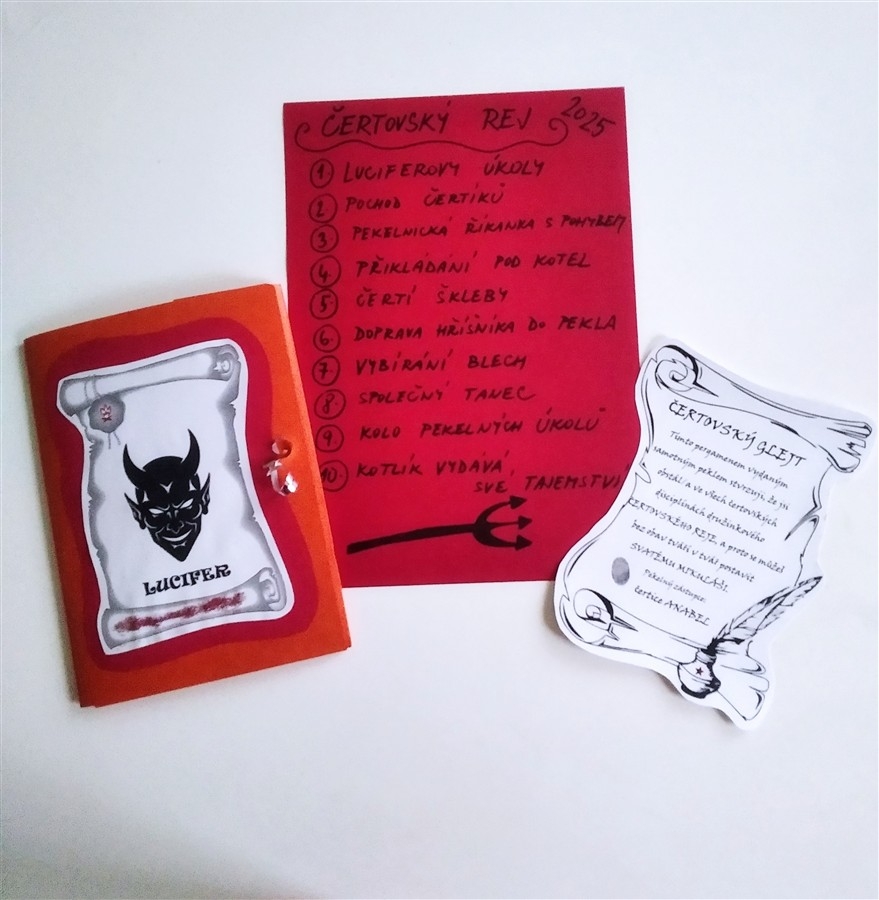 ČERTOVSKÝ REJ 2025
1. LUCIFEROVY ÚKOLY
2. POCHOD ČERTÍKŮ
3. PEKELNICKÁ ŘÍKANKA S POHYBEM
4. PŘIKLÁDÁNÍ POD KOTEL
5. ČERTÍ ŠKLEBY
6. DOPRAVA HŘÍŠNÍKA DO PEKLA
7. VYBÍRÁNÍ BLECH
8. SPOLEČNÝ TANEC
9. KOLO PEKELNÝCH ÚKOLŮ
10. KOTLÍK VYDÁVÁ
SVÉ TAJEMSTVÍ
LUCIFER
ČERTOVSKÝ GLEJT
Tímto pergamenem vydaným
samotným peklem stvrzuji, že jsi
obstál/a ve všech čertovských
disciplínách družinkového
ČERTOVSKÉHO REJE, a proto se můžeš
bez obav tváří v tvář postavit
SVATÉMU MIKULÁŠI.
Pekelný zástupce:
čertice ANABEL